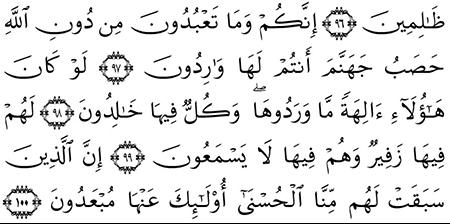 ظَٰلِمِينَ ٩٦ إِنَّكُمْ وَمَا تَعْبُدُونَ مِن دُونِ ٱللَّهِ
حَصَبُ جَهَنَّمَ أَنتُمْ لَهَا وَٰرِدُونَ ٩٧ لَوْ كَانَ
هَٰٓؤُلَآءِ ءَالِهَةً مَّا وَرَدُوهَا ۖ وَكُلٌّ فِيهَا خَٰلِدُونَ ٩٨ لَهُمْ
فِيهَا زَفِيرٌ وَهُمْ فِيهَا لَا يَسْمَعُونَ ٩٩ إِنَّ ٱلَّذِينَ
سَبَقَتْ لَهُم مِّنَّا ٱلْحُسْنَىٰٓ أُو۟لَٰٓئِكَ عَنْهَا مُبْعَدُونَ ١٠٠